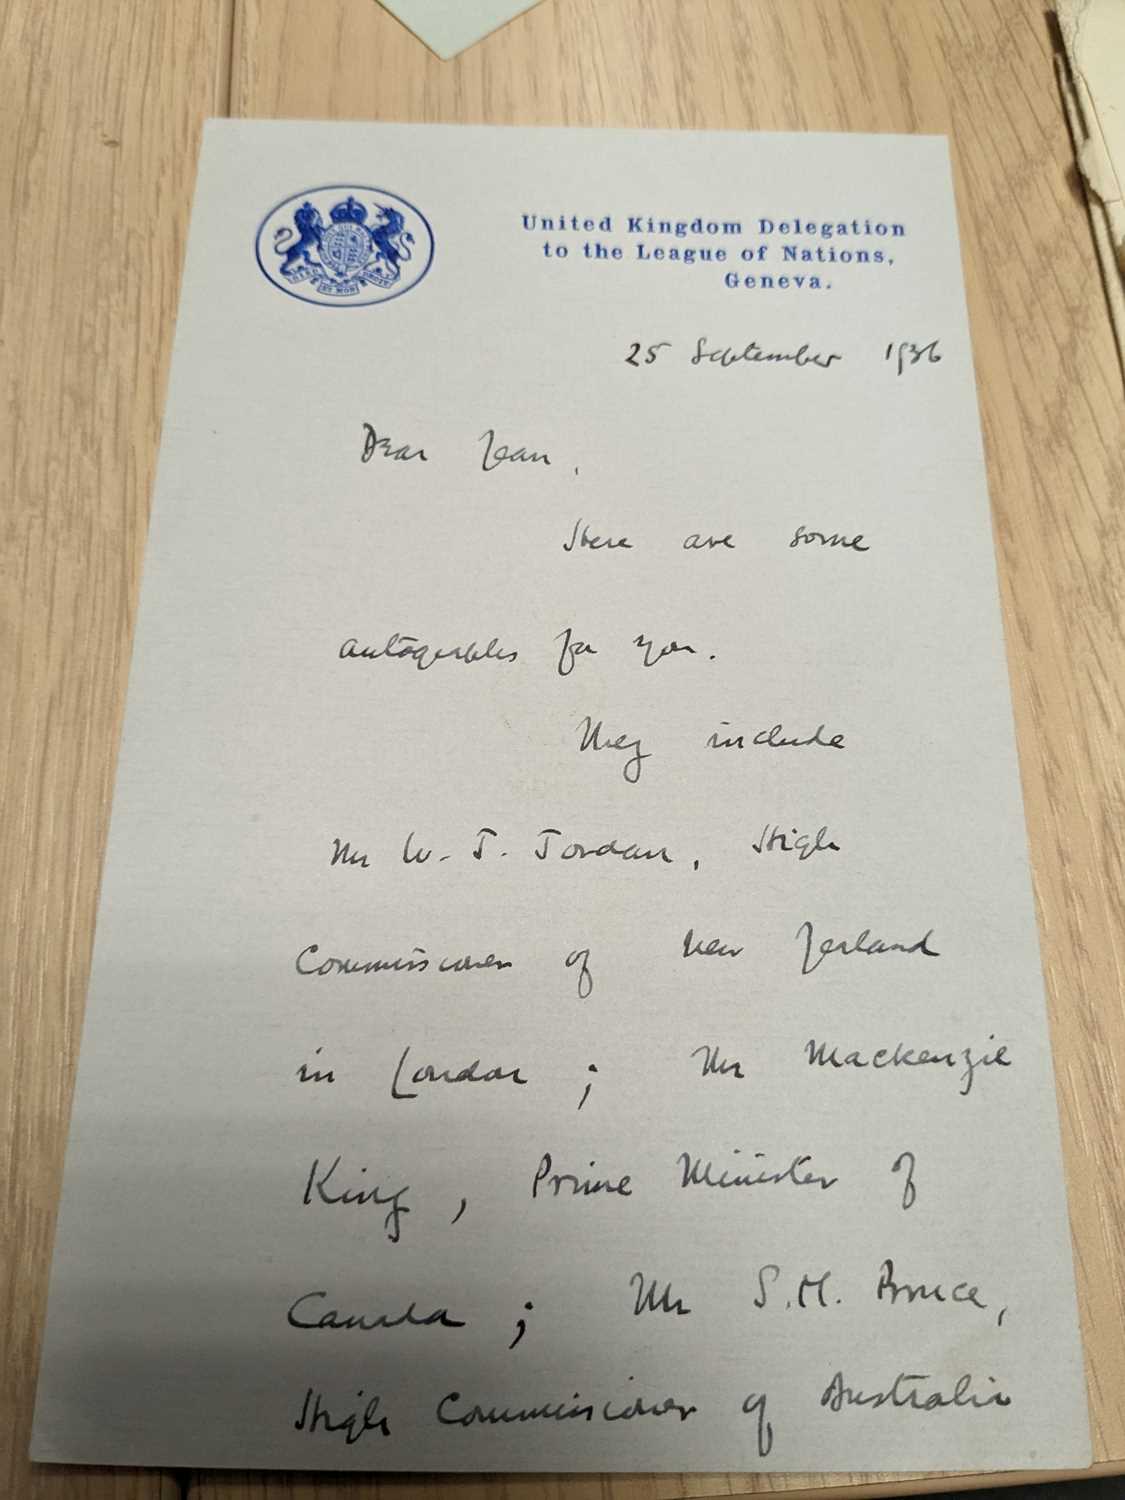 United Kingdom Delegation
to the League of Nations,
Geneva.
25 September 1936
Dear Jean,
Here are some
autographs for you.
They include
Mr W. J. Jordan, High
Commissioner of New Zealand
in London; Mr Mackenzie
King, Prime Minister of
Canada; Mr S.M. Bruce,
High Commissioner of Australia